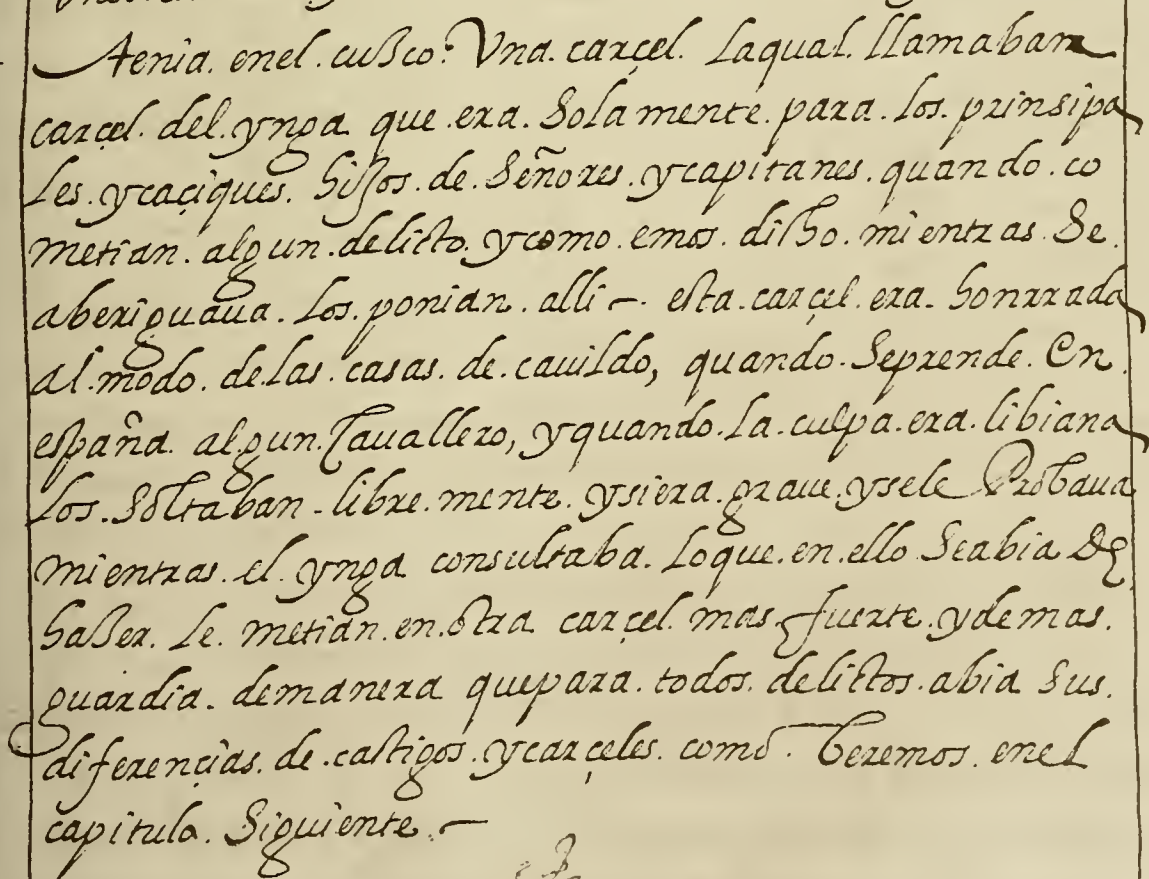 tenia. enel. cusco. Vna. carçel. laqual. llamaban
carçel. del. ynga que era. solamente. para. los. prinsipa
les. ycaçiques. hijos. de. señores. ycapitanes. quando. co
metian. algun. delicto. ycomo. emos. dicho. mientras. se.
aberiguaua. los. ponian. alli — esta. carçel. era. honrrada
al. modo. de. las. casas. de. cauildo, quando. seprende. En.
españa. algun. Cauallero, yquando. la. culpa. era. libiana
los. soltaban - libre. mente. ysiera. graue. ysele Probaua
mientras. el. ynga consultaba. loque. en. ello seabia de
haser. le. metian. en. otra carçel. mas. fuerte. ydemas.
guardia. demanera quepara. todos. delictos. abia sus.
diferençias. de. castigos. ycarçeles. como. beremos. enel
capitulo. siguiente. —